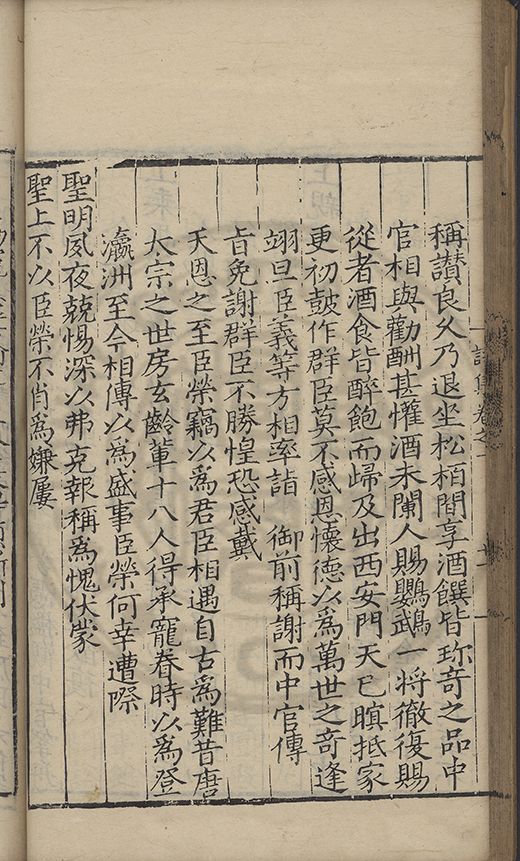 稱讃良久乃退坐松栢間享酒饌皆珎奇之品中
官相與勸酬甚懽酒未闌人賜鸚鵡一將徹復賜
從者酒食皆醉飽而歸及出西安門天已瞑抵家
更初鼓作群臣莫不感恩懷德以爲萬世之奇逢
翊旦臣義等方相率詣 御前稱謝而中官傳
旨免謝群臣不勝惶恐感戴
天恩之至臣榮竊以爲君臣相遇自古爲難昔唐
太宗之世房玄齡軰十八人得承寵眷時以爲登
瀛洲至今相傳以爲盛事臣榮何幸遭際
聖明夙夜兢惕深以弗克報稱爲愧伏蒙
聖上不以臣榮不肖爲嫌屢